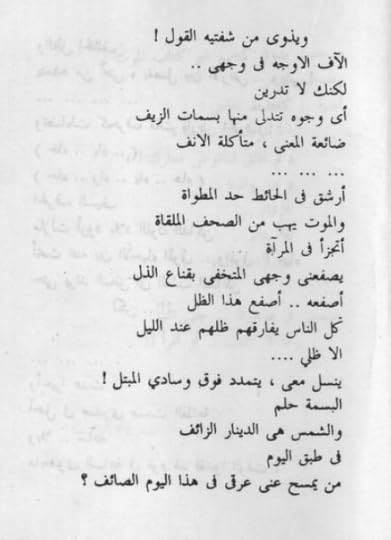 ويذوى من شفتيه القول !
الآف الاوجه فى وجهى ..
لكنك لا تدرين
أى وجوه تتدلى منها بسمات الزيف
ضائعة المعنى ، متآكلة الانف
... ... ...
أرشق فى الحائط حد المطواة
والموت يهب من الصحف الملقاة
أتجزأ فى المرآة
يصفعنى وجهى المتخفى بقناع الذل
أصفعه .. أصفع هذا الظل
كل الناس يفارقهم ظلهم عند الليل
الا ظلي ....
ينسل معى ، يتمدد فوق وسادي المبتل !
البسمة حلم
والشمس هى الدينار الزائف
فى طبق اليوم
من يمسح عنى عرقى فى هذا اليوم الصائف ؟